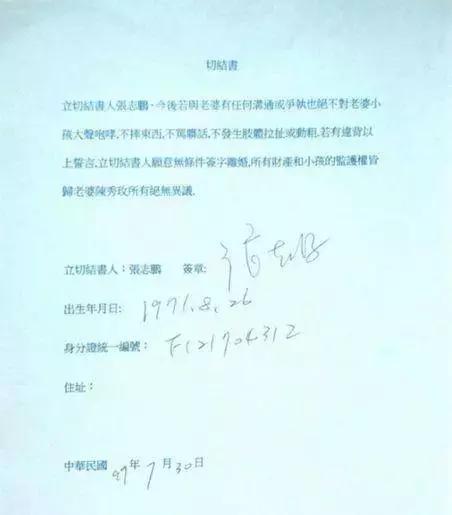 切結書
立切結書人張志鵬,今後若與老婆有任何溝通或爭執也絕不對老婆小
孩大聲咆哮,不摔東西,不罵髒話,不發生肢體拉扯或動粗.若有違背以
上誓言,立切結書人願意無條件簽字離婚,所有財產和小孩的監護權皆
歸老婆陳秀玫所有絕無異議.
立切結書人:張志鵬 簽章:
出生年月日: 1971.8.26
身分證統一編號: F121704312
住址:
中華民國 97年 7月30日